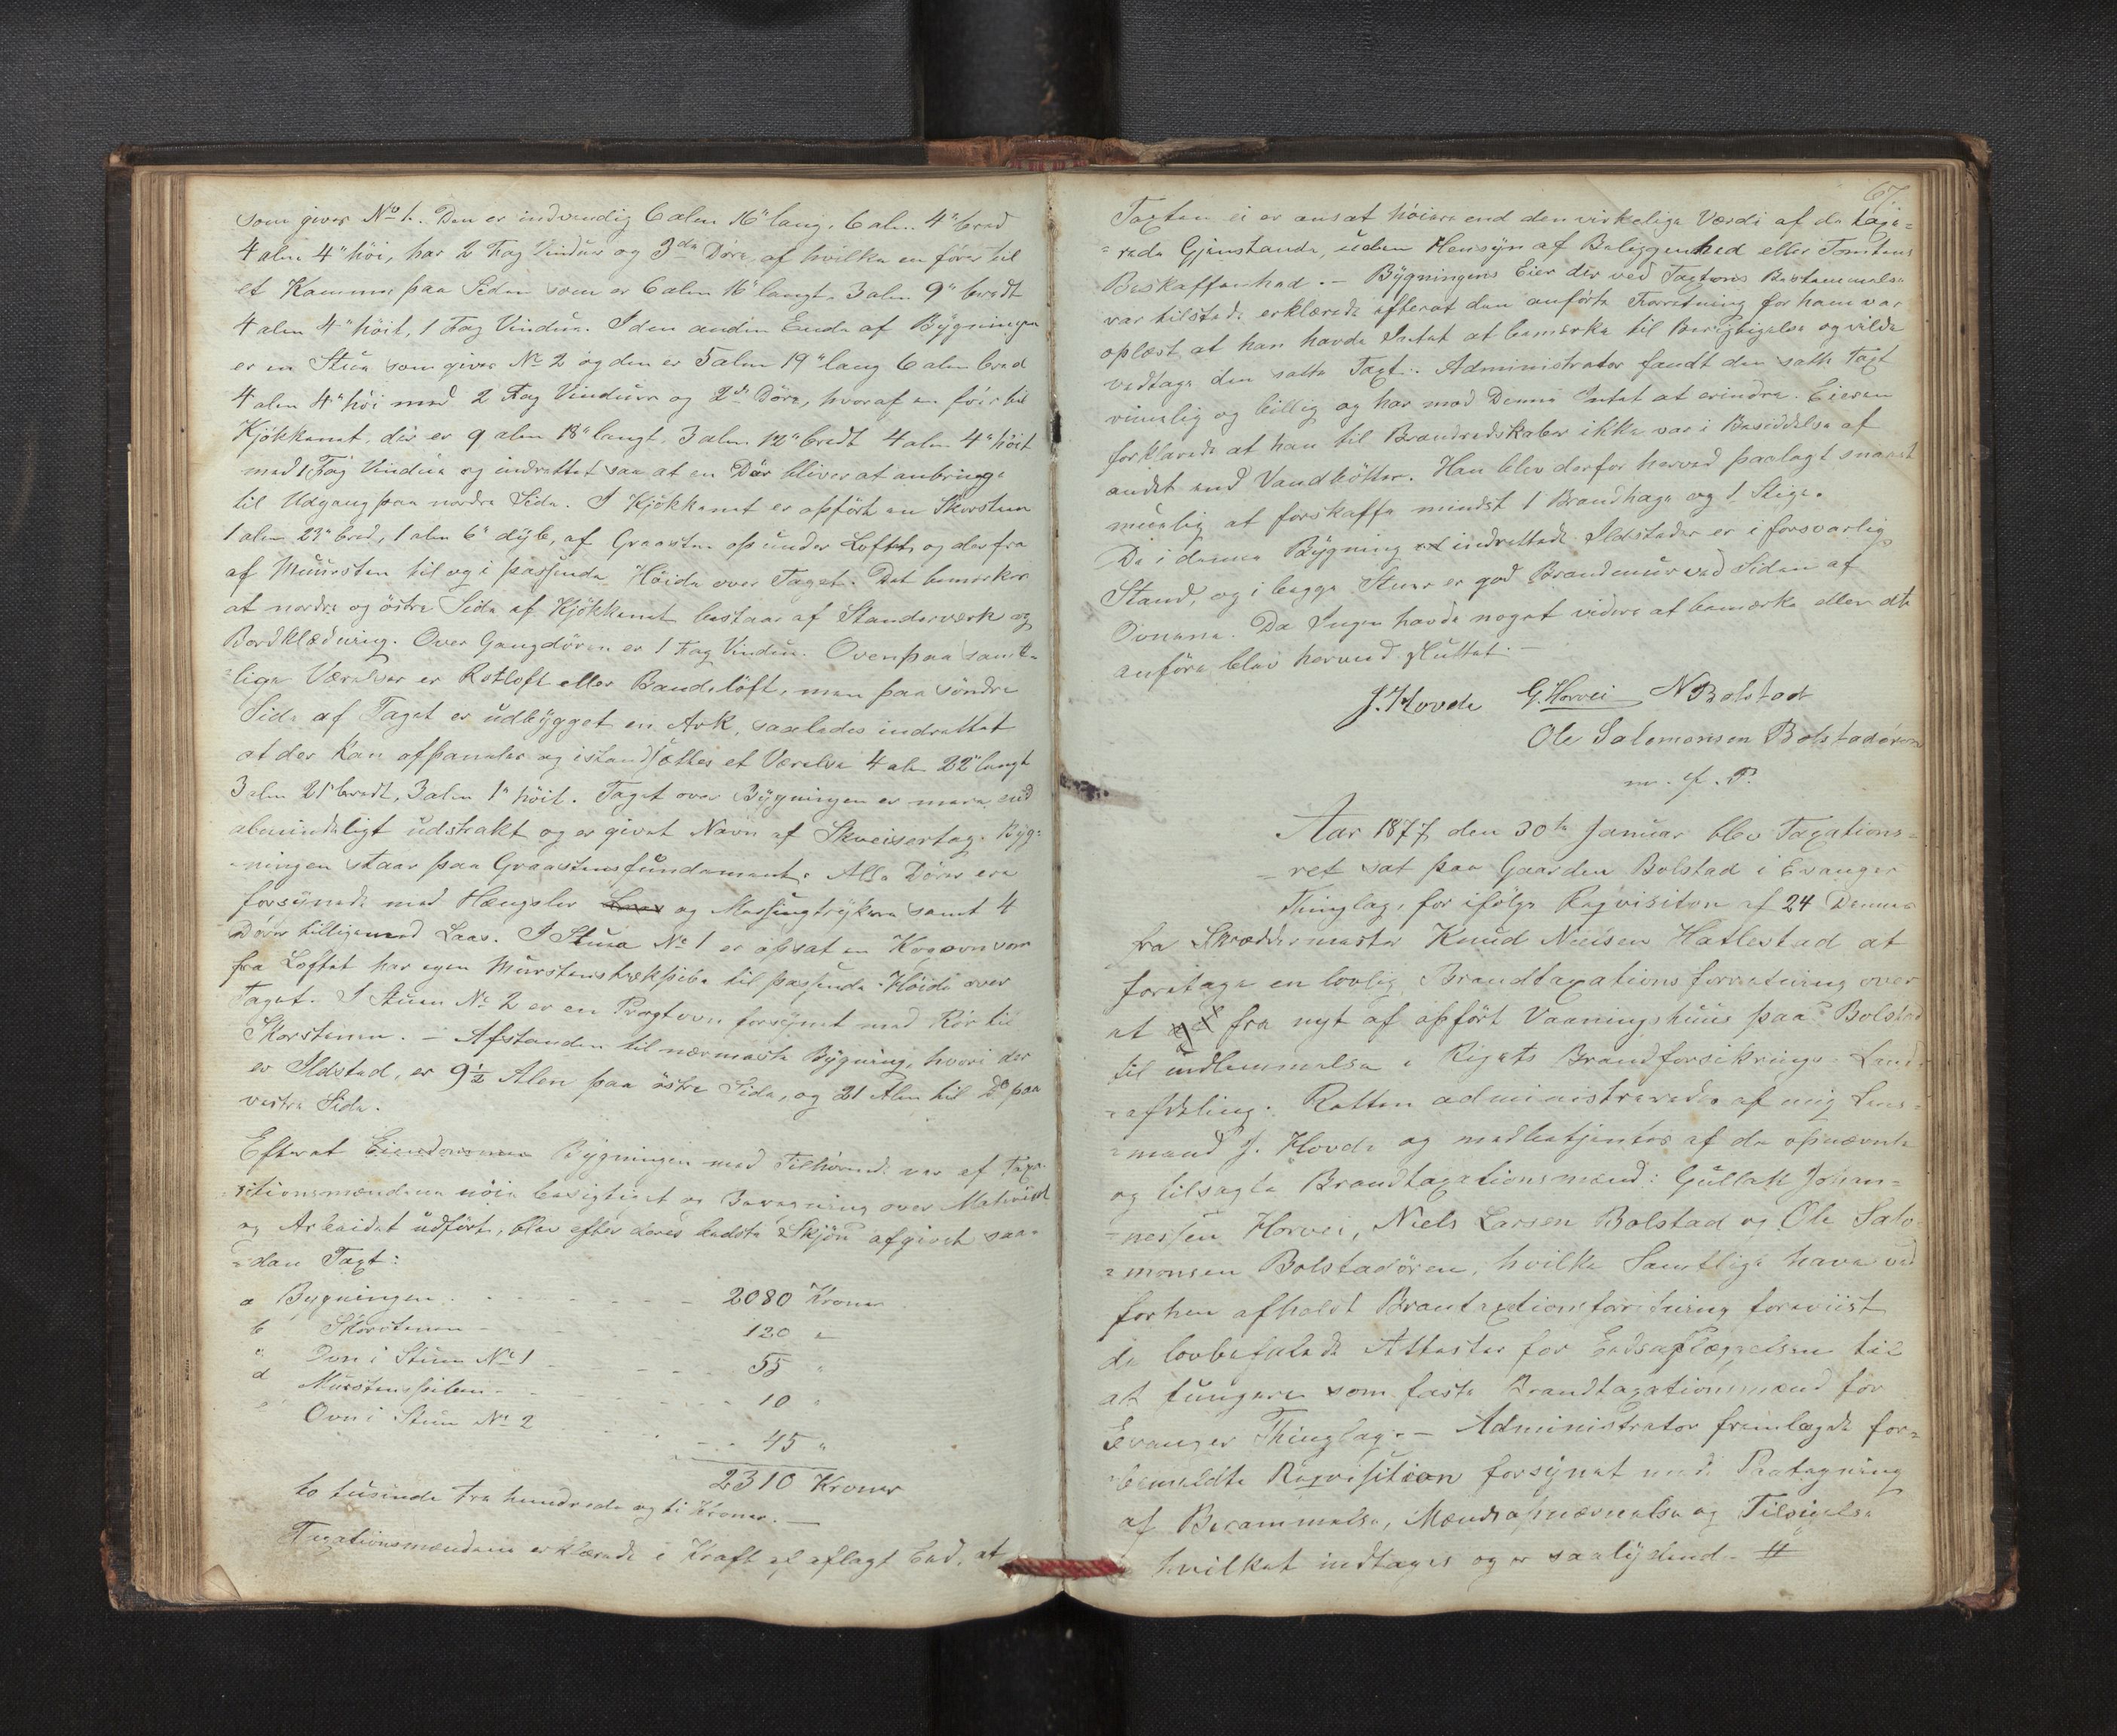 som gives No 1. Den er indvendig 6 alen 16" lang, 6 alen 4" bred
4 alen 4" höi, har 2 Fag Vinduer og 3de Döre, af hvilke en förer til
et Kammer paa Siden som er 6 alen 16" langt, 3 alen 9" bredt
4 alen 4" höit, 1 Fag Vindue. I den anden Ende af Bygningen
er en Stue som gives No 2 og den er 5 alen 19" lang 6 alen bred
4 alen 4" höi med 2 Fag Vinduer og 2de Döre, hvoraf en förer til
Kjökkenet, der er 9 alen 18" langt, 3 alen 12" bredt 4 alen 4" höit
med 1 Fag Vindue og indrettet saa at en Dör bliver at anbringe
til Udgang paa nordre Side. I Kjökkenet er opfört en Skorsteen
1 alen 23" bred, 1 alen 6" dyb, af Graasten op under Loftet, og derfra
af Muursten til og i passende Höide over Taget. Det bemerkes
at nordre og östre Side af Kjökkenet bestaar af Standerværk og
Bordklædning. Over Gangdören er 1 Fag Vindue. Ovenpaa samt-
lige Værelser er Rotloft eller Baandsloft, men paa söndre
Side af Taget er udbygget en Ark, saaledes indrettet
at der kan afpaneles og istandsættes et Værelse 4 alen 22" langt
3 alen 21" bredt, 3 alen 1" höit. Taget over Bygningen er mere end
almindeligt udstrakt og er givet Navn af Skveisertag. Byg-
ningen staar paa Graastensfundament. Alle Döre ere
forsynede med Hængsler og Messingtrykere samt 4
Döre tilligemed Laas. I Stuen No 1 er opsat en Kogeovn som
fra Loftet har egen Murstenstrækpibe til passende Höide over
Taget. I Stuen No 2 er en Pragtovn forsynet med Rör til
Skorstenen. - Afstanden til nærmeste Bygning, hvori der
er Ildsted, er 9½ Alen paa östre Side, og 21 Alen til Do paa
vestre Side.
Efterat Eiendommen Bygningen med Tilhörende var af Tax-
ationsmændene nöie besigtiget og Beregning over Materiel
og Arbeidet udfört, blev efter deres bedste Skjön afgivet saa-
=dan Taxt:
a Bygningen 2080 Kroner
b Skorstenen 120 "
" Ovn i Stuen No 1 55 "
d Murstenspiben 10 "
Ovn i Stuen No 2 45 "
2310 Kroner
to tusinde tre hundrede og ti Kroner. -
Taxationsmændene erklærede i Kraft af aflagt Eed, at
67.
Taxten ei er ansat höiere end den virkelige Værdi af de taxe-
=rede Gjenstande, uden Hensyn af Beliggenhed eller Tomtens
Beskaffenhed. - Bygningens Eier der ved Taxtens Bestemmelse
var tilstede erklærede efterat den anförte Forretning for ham var
oplæst, at han havde Intet at bemerke til Berigtigelse og vilde
vedtage den satte Taxt. Administrator fandt den satte Taxt
rimelig og billig og har mod Denne Intet at erindre. Eieren
forklarede at han til Brandredskaber ikke var i Besiddelse af
andet end Vandbötter. Han blev derfor herved paalagt snarest
muelig at forskaffe mindst 1 Brandhage og 1 Stige.
De i denne Bygning indrettede Ildsteder er i forsvarlig
Stand, og i begge Stuer er god Brandmuur ved Siden af
Ovnene. Da Ingen havde noget videre at bemærke eller
anföre blev herved sluttet. -
J. Hovde G. Horvei N Bolstad
Ole Salomonsen Bolstadören
m. f. P.
Aar 1877, den 30te Januar blev Taxations-
=ret sat paa Gaarden Bolstad i Evanger
Thinglag, for ifölge Reqvisition af 24 Dennes
fra Skræddermester Knud Nielsen Hatlestad at
foretage en lovlig Brandtaxationsforretning over
et fra nyt af opfört Vaaningshuus paa Bolstad
til indlemmelse i Rigets Brandforsikrings Land-
=afdeling. Retten administreredes af mig Lens-
=mand J. Hovde og medbetjentes af de opnævnte
og tilsagte Brandtaxationsmænd: Gullak Johan-
=nessen Horvei, Niels Larsen Bolstad og Ole Salo-
=monsen Bolstadören, hvilke Samtlige have ved
forhen afholdt Brantaxtionsforretning foreviist
de lovbefalede Attester for Eedsaflæggelsen til
at fungere som faste Brandtaxationsmænd for
Evanger Thinglag. - Administrator fremlægde for-
bemeldte Reqvisition forsynet med Paategning
af Berammelse, Mændsopnævnelse og Tilsigelse
hvilket indtages og er saalydend- #